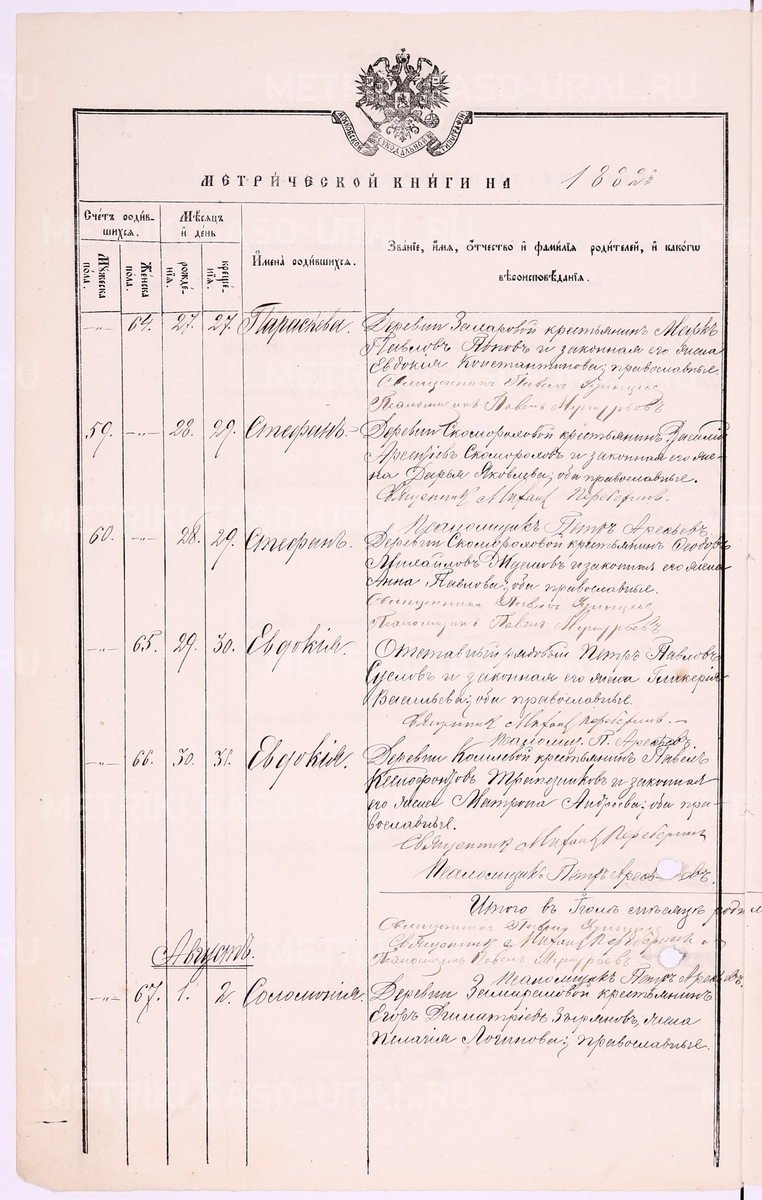 ДУХОВСКОЙ СУНОДАЛЬНОЙ ТИПОГРАФІИ
МЕТРИЧЕСКОЙ КНИГИ НА 1882
Счетъ родившихся.
Мужеска пола.
Женска пола.
Мѣсяцъ и день
рожденія.
крещенія.
Имена родившихся.
Званіе, имя, отчество и фамилія родителей, и какогω
вѣроисповѣданія.
-„- 64. 27. 27. Параскева. Деревни крестьянинъ Маркъ
Павловъ Поповъ и законная его жена
Евдокія Константинова; православные.
Священникъ Павелъ
Псаломщикъ Павелъ Меркурьевъ
59. -„- 28. 29. Стефанъ. Деревни Скомороховой крестьянинъ Василій
Арсеніевъ Скомороховъ и законная его же-
на Дарья Яковлева; оба православные.
Священникъ Михаилъ
Псаломщикъ Петръ Арефьевъ
60. -„- 28. 29. Стефанъ. Деревни Скомороховой крестьянинъ Ѳеодоръ
Михайловъ и законная его жена
Анна Павлова; оба православные.
Священникъ Павелъ
Псаломщикъ Павелъ Меркурьевъ
-„- 65. 29. 30. Евдокія. Отставный рядовый Петръ Павловъ
Сусловъ и законная его жена Гликерія
Васильева; оба православные.
Священникъ Михаилъ
Псаломщ. П. Арефьевъ.
-„- 66. 30. 31. Евдокія. Деревни крестьянинъ Павелъ
Ксенофонтовъ Трапезниковъ и законная
его жена Матрона Андреева; оба пра-
вославные.
Священникъ Михаилъ
Псаломщикъ Петръ
Итого въ Іюлѣ мѣсяцѣ
Священникъ Павелъ
Священникъ Михаилъ
Псаломщикъ Павелъ Меркурьевъ
Псаломщикъ Петръ Арефьевъ.
Августъ.
-„- 67. 1. 2. Соломонія. Деревни крестьянинъ
Егоръ Димитріевъ Зыряновъ, жена
Пелагія Логинова; православные.
METRIKI.EASO-URAL.RU